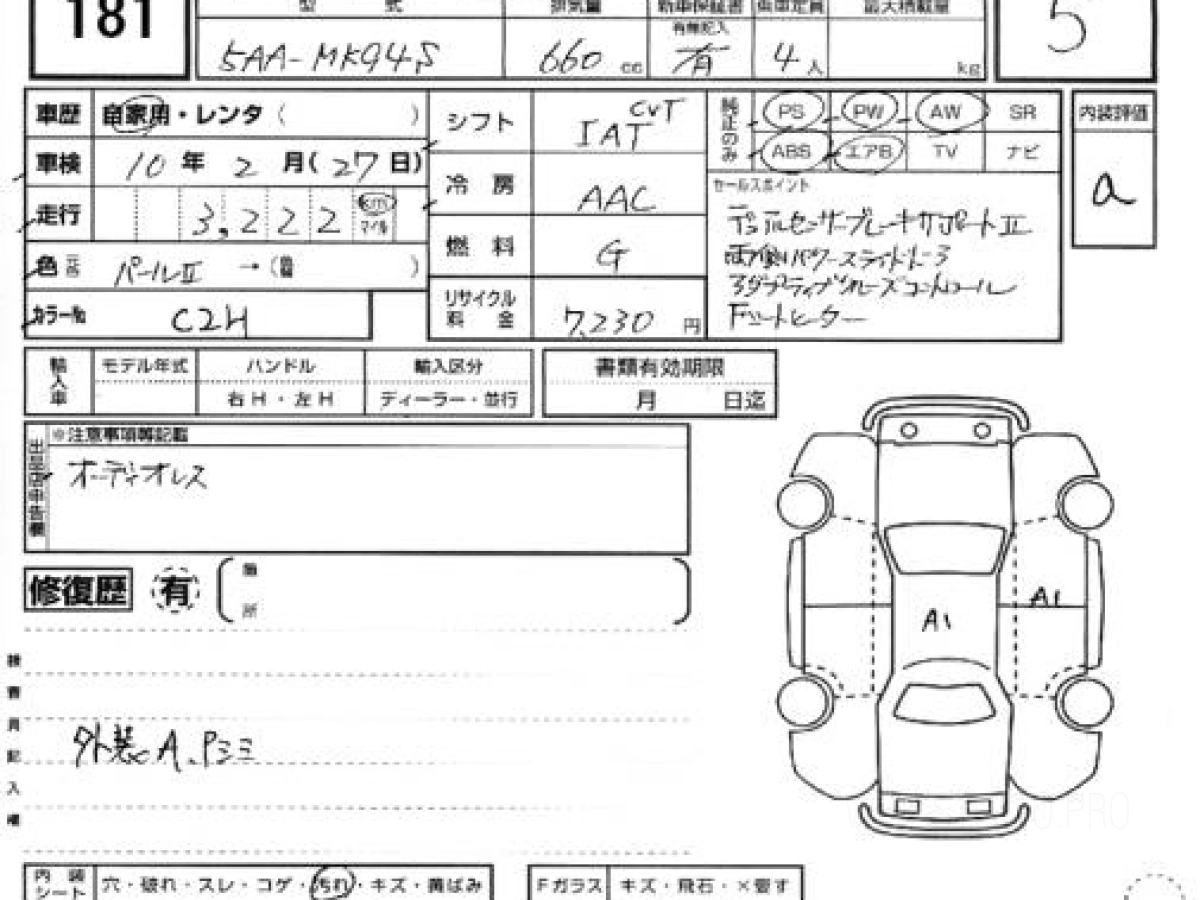 181
型 式 排気量 新車保証書 乗車定員 最大積載量
有無記入
5AA-MK94S 660 cc 有 4人 kg
5
車歴 自家用・レンタ( )
車検 10年 2月(27日)
走行 3,222 km マイル
色 元色 パールII →( )
カラーNo C2H
シフト CVT IAT
冷房 AAC
燃料 G
リサイクル料金 7,230円
純正のみ PS PW AW SR
ABS エアB TV ナビ
セールスポイント
デュアルセンサーブレーキサポートII
両側パワースライドドア
アダプティブクルーズコントロール
Fシートヒーター
内装評価
a
輸入車 モデル年式 ハンドル 輸入区分
右H・左H ディーラー・並行
書類有効期限
月 日迄
出品店申告欄 ※注意事項等記載
オーディオレス
修復歴 有 箇所
検査員記入欄
外装A、Pミミ
A1
A1
内装シート 穴・破れ・スレ・コゲ・汚れ・キズ・黄ばみ
Fガラス キズ・飛石・×要す